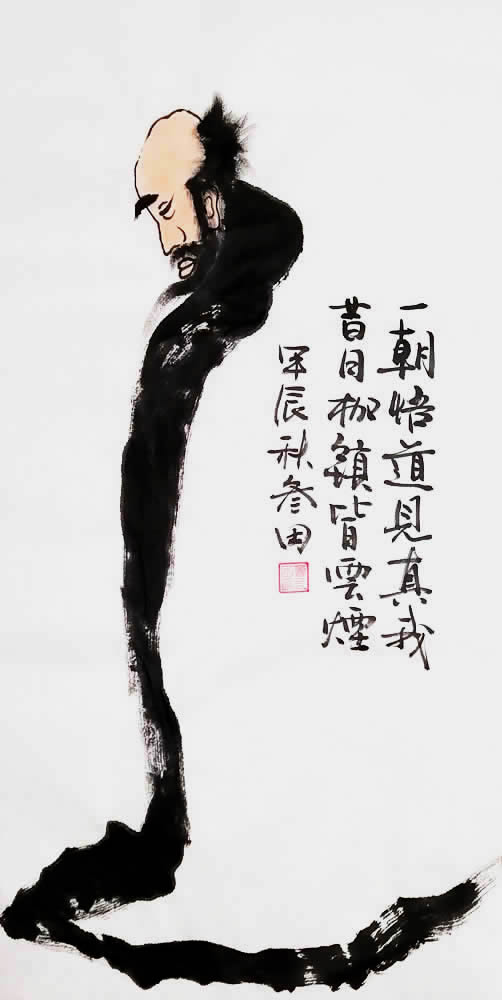 一朝悟道見真我
昔日枷鎖皆雲煙
甲辰秋田